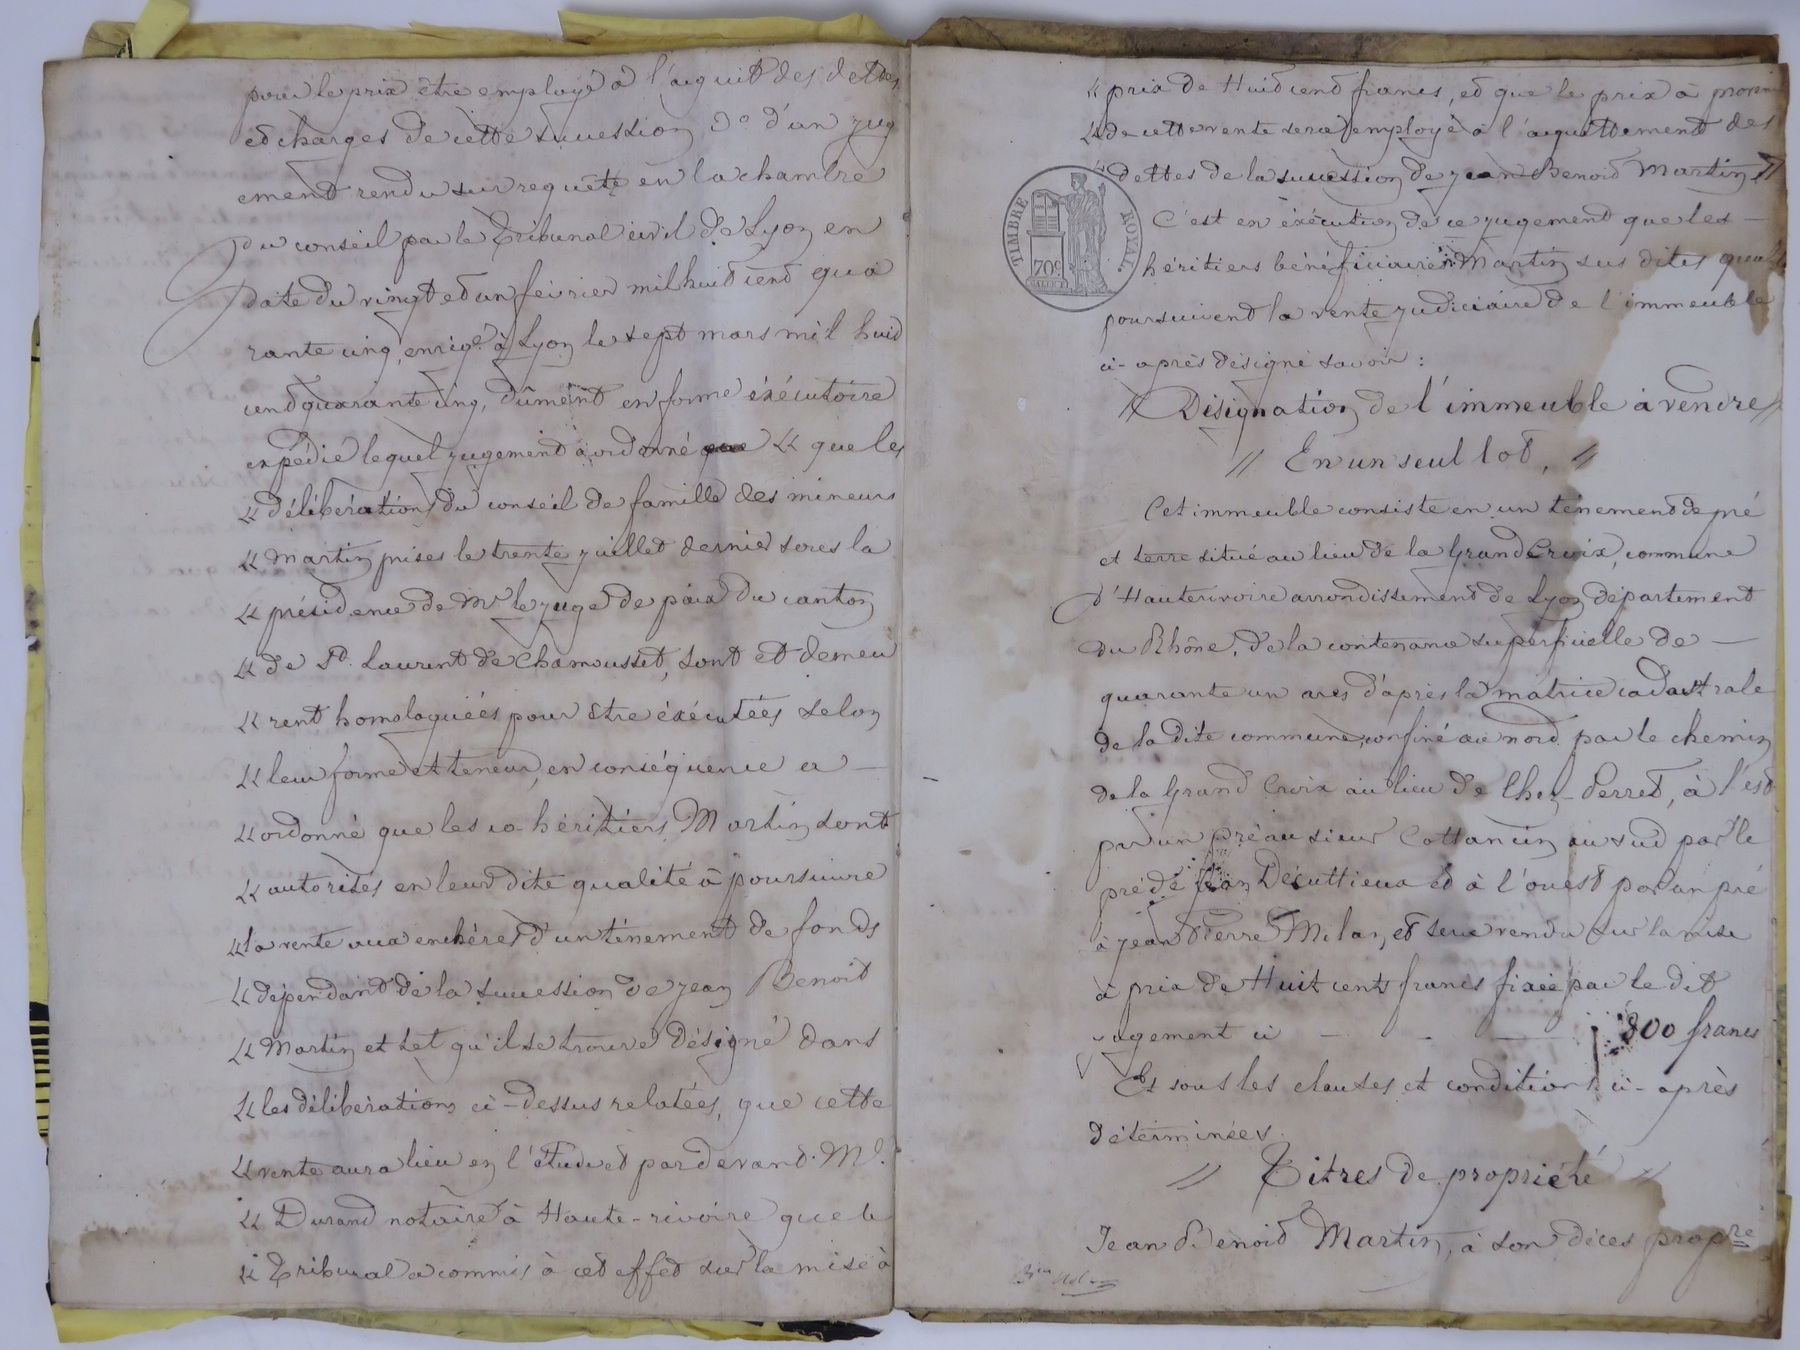 pour le prix être employé à l'acquit des dettes
et charges de cette succession 3º d'un jug
ement rendu sur requête en la chambre
du conseil par le Tribunal civil de Lyon en
date du vingt et un février mil huit cent qua
rante cinq, enrigé à Lyon le sept mars mil huit
cent quarante cinq, dûment en forme éxécutoire
expédié lequel jugement a ordonné « que les
« délibérations du conseil de famille des mineurs
« Martin prises le trente juillet dernier sous la
« présidence de Mr le juge de paix du canton
« de St. Laurent de Chamousset, sont et demeu
« rent homologuéés pour être éxécutées selon
« leur forme et teneur, en conséquence a —
« ordonné que les co-héritiers Martin sont
« autorisés en leur dite qualité à poursuivre
« la vente aux enchères d'un tènement de fonds
« dépendant de la succession de Jean Benoit
« Martin et tel qu'il se trouve désigné dans
« les délibérations ci-dessus relatées, que cette
« vente aura lieu en l'étude et pardevant Me.
« Durand notaire à Haute-rivoire que le
« Tribunal a commis à cet effet sur la mise à
« prix de Huit cent francs, et que le prix à provenir
« de cette vente sera employé à l'acquittement des
« dettes de la succession de Jean Benoit Martin »
TIMBRE ROYAL
70c
C'est en éxécution de ce jugement que les —
héritiers bénéficiaires Martin sus dites qualités
poursuivent la vente judiciaire de l'immeuble
ci-après désigné savoir :
// Désignation de l'immeuble à vendre //
// En un seul lot, //
Cet immeuble consiste en un tènement de pré
et terre situé au lieu de la Grand Croix, commune
d'Hauterivoire arrondissement de Lyon département
du Rhône, de la contenance superficielle de —
quarante un ares d'après la matrice cadastrale
de la dite commune, confiné au nord par le chemin
de la Grand Croix au lieu de Chez-Perret, à l'est
par un pré au sieur Cottancin au sud par le
pré de Jean Décuttieux et à l'ouest par un pré
à Jean Pierre Milan, et sera vendu sur la mise
à prix de Huit cents francs fixée par le dit
jugement ci — - — 800 francs
Et sous les clauses et conditions ci-après
déterminées.
// Titres de propriété //
Jean Benoit Martin, à son décès propre